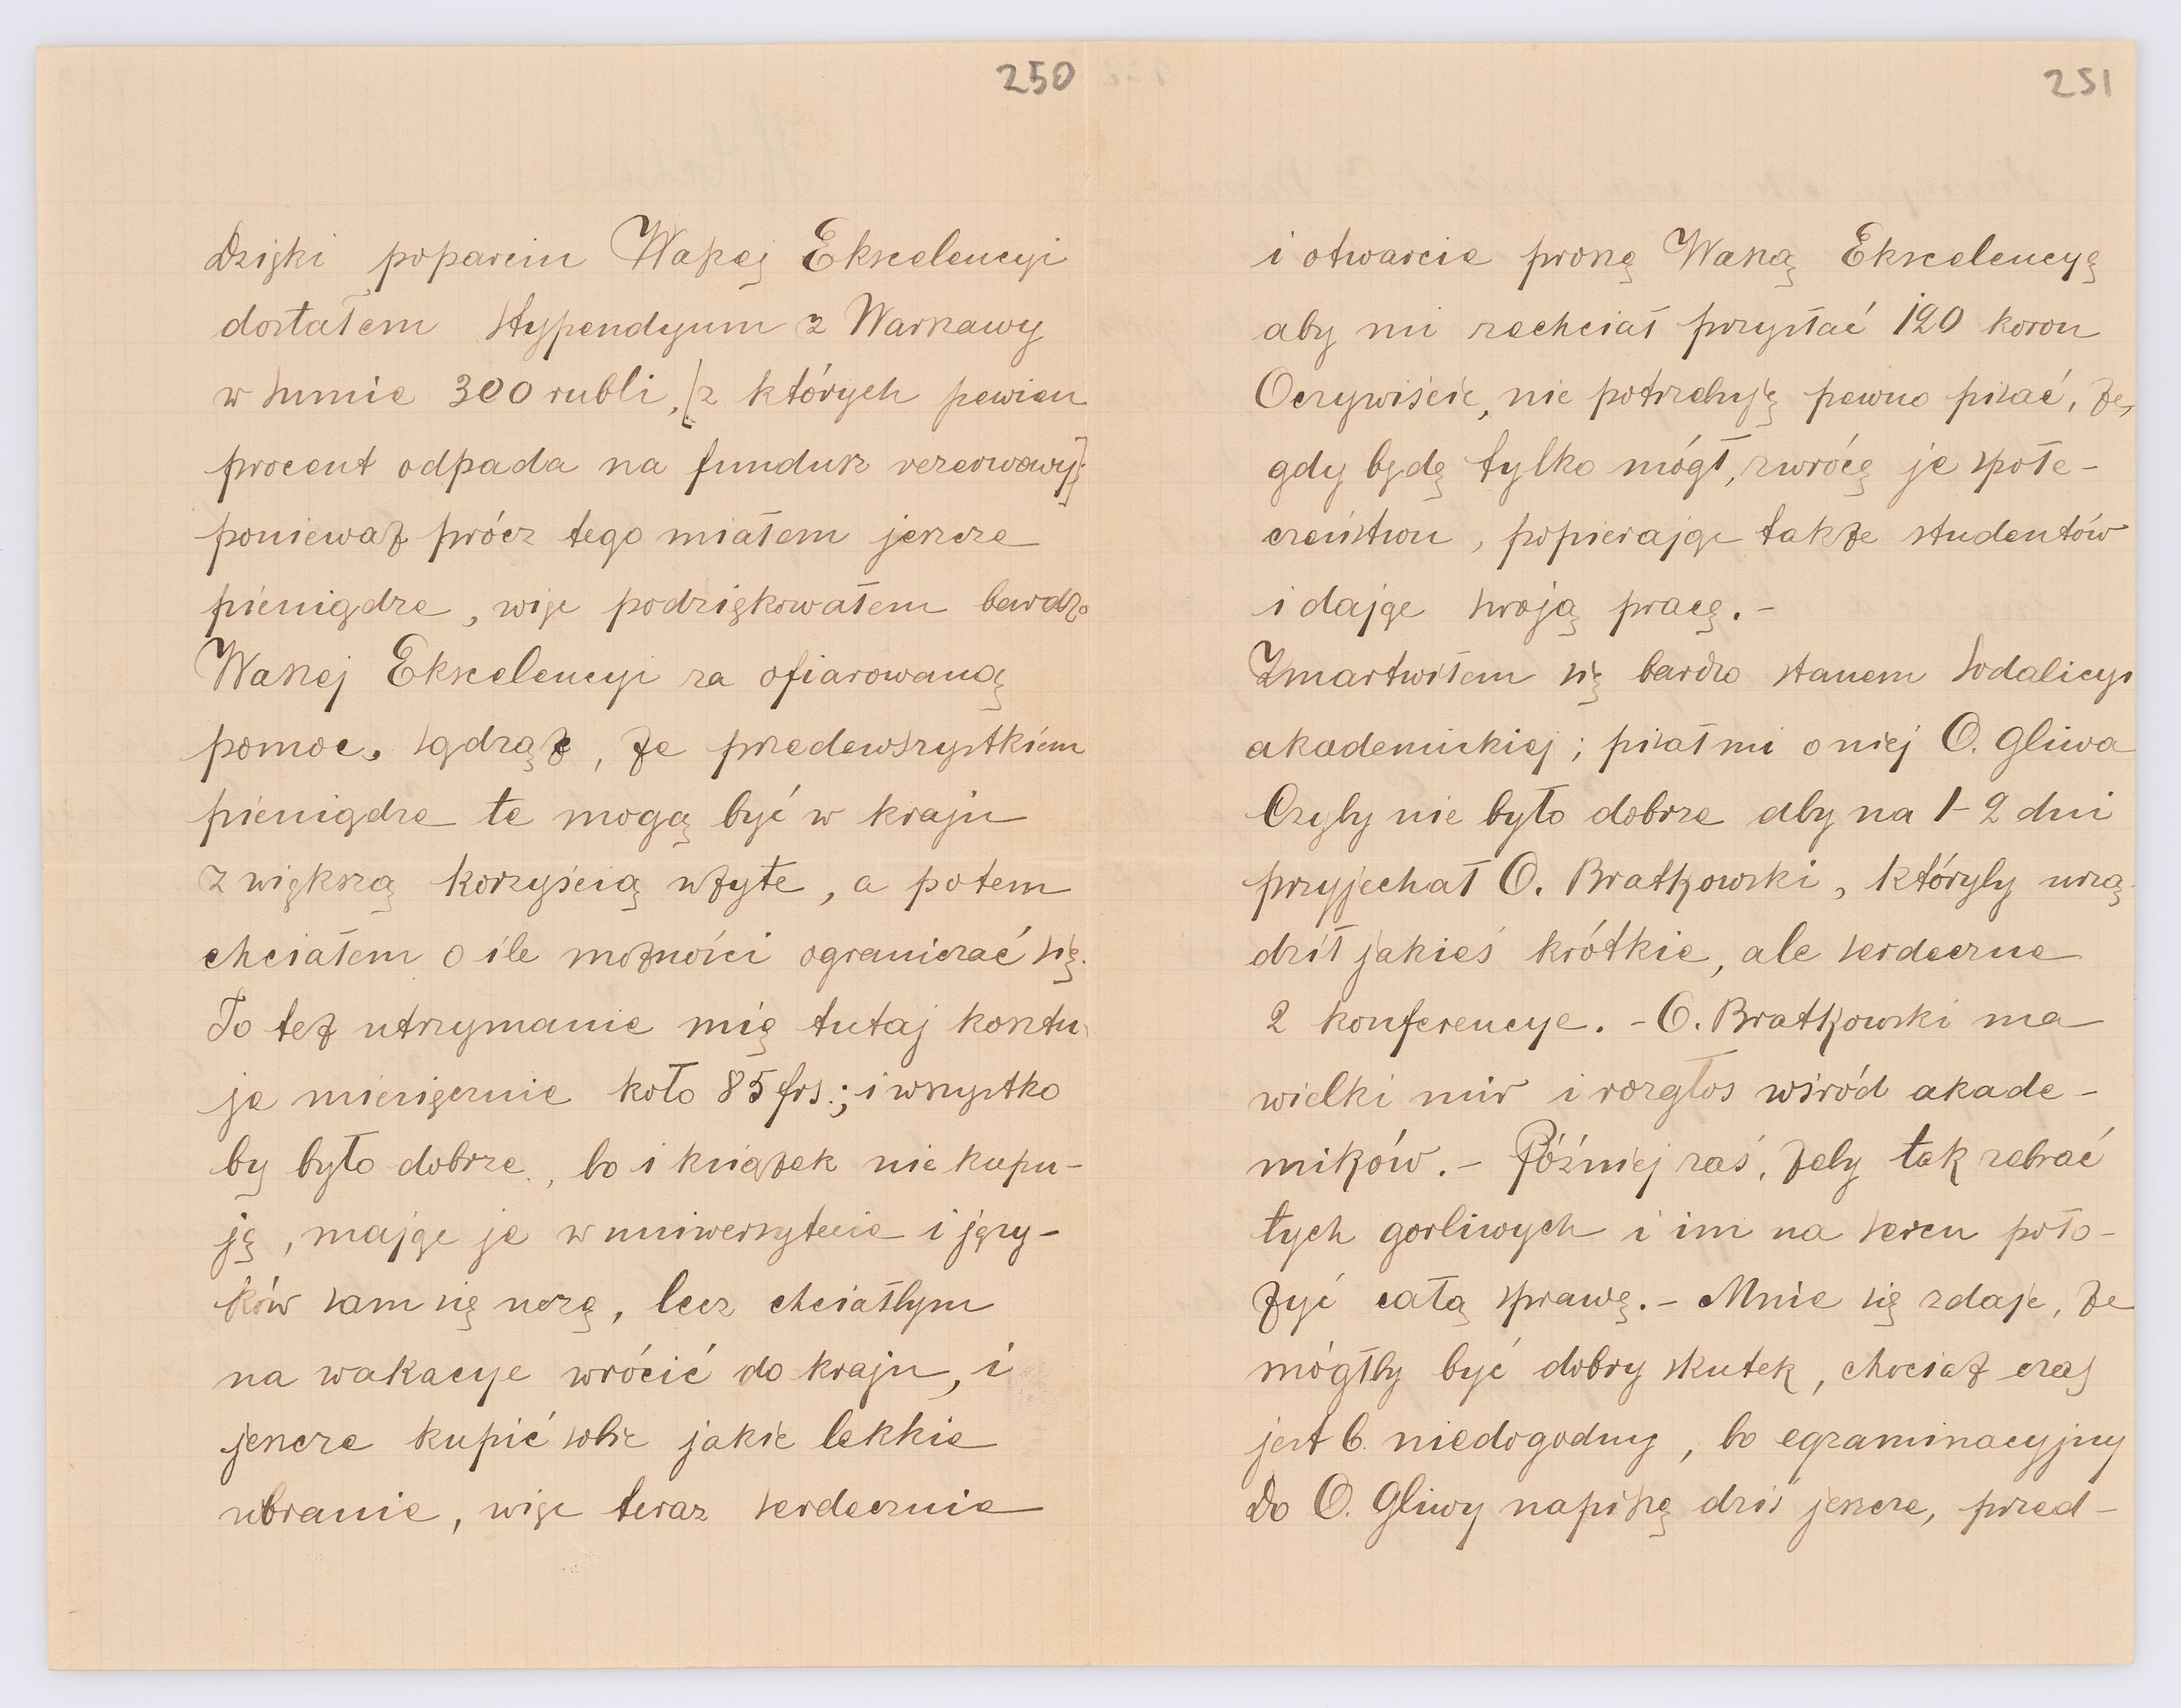 250
Dzięki poparciu Waszej Ekscelencyi
dostałem stypendyum z Warszawy
w sumie 300 rubli, [z których pewien
procent odpada na fundusz rezerwowy];
ponieważ prócz tego miałem jeszcze
pieniądze, więc podziękowałem bardzo
Waszej Ekscelencyi za ofiarowaną
pomoc, sądząc, że przedewszystkiem
pieniądze te mogą być w kraju
z większą korzyścią użyte, a potem
chciałem o ile możności ograniczać się.
To też utrzymanie mię tutaj kosztu
je miesięcznie koło 85 frs.; i wszystko
by było dobrze, bo i książek nie kupu-
ję, mając je w uniwersytecie i języ-
ków sam się uczę, lecz chciałbym
na wakacye wrócić do kraju, i
jeszcze kupić sobie jakie lekkie
ubranie, więc teraz serdecznie
251
i otwarcie proszę Waszą Ekscelencyę
aby mi zechciał przysłać 120 koron
Oczywiście, nie potrzebuję pewno pisać, że,
gdy będę tylko mógł, zwrócę je społe-
czeństwu, popierając także studentów
i dając swoją pracę. -
Zmartwiłem się bardzo stanem Sodalicyi
akademickiej; pisał mi o niej O. Gliwa
Czyby nie było dobrze aby na 1-2 dni
przyjechał O. Bratkowski, któryby urzą-
dził jakieś krótkie, ale serdeczne
2 konferencye. - O. Bratkowski ma
wielki mir i rozgłos wśród akade-
mików. - Później zaś, żeby tak zebrać
tych gorliwych i im na sercu poło-
żyć całą sprawę. - Mnie się zdaje, że
mógłby być dobry skutek, chociaż czas
jest b. niedogodny, bo egzaminacyjny
Do O. Gliwy napiszę dziś jeszcze, przed-